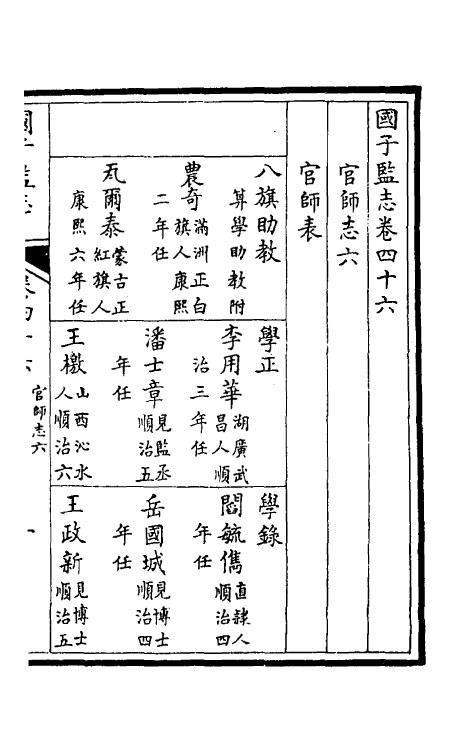 國子監志卷四十六
官師志六
官師表
八旗助教
算學助教附
農奇
滿洲正白
旗人康熙
二年任
瓦爾泰
蒙古正
紅旗人
康熙六年任
學正
李用華
湖廣武
昌人順
治三年任
潘士章
見監丞
順治五
年任
王檄
山西沁水
人順治六
學錄
閻毓儁
直隸人
順治四
年任
岳國城
見博士
順治四
年任
王政新
見博士
順治五
官師志六
一